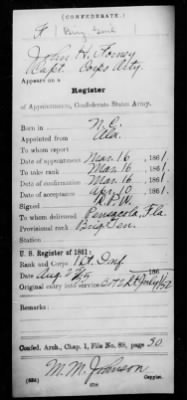 (CONFEDERATE.)
F Brig Genl
John H. Forney
Capt. Corps Arty.
Appears on a
Register
of Appointments, Confederate States Army.
Born in N.C.
Appointed from Ala.
To whom report
Date of appointment Mar. 16, 1861.
To take rank Mar. 16, 1861.
Date of confirmation Mar. 16, 1861.
Date of acceptance Apr. 10, 1861.
Signed
To whom delivered Pensacola, Fla.
Provisional rank Brig Gen.
Station
U. S. Register of 1861:
Rank and Corps 1 Lt. Inf
Date Aug 25/55, 186
Original entry into service Bvt 2 Lt July 1/52
Remarks:
Confed. Arch., Chap. 1, File No. 88, page 30
M. M. Johnson
Copyist.